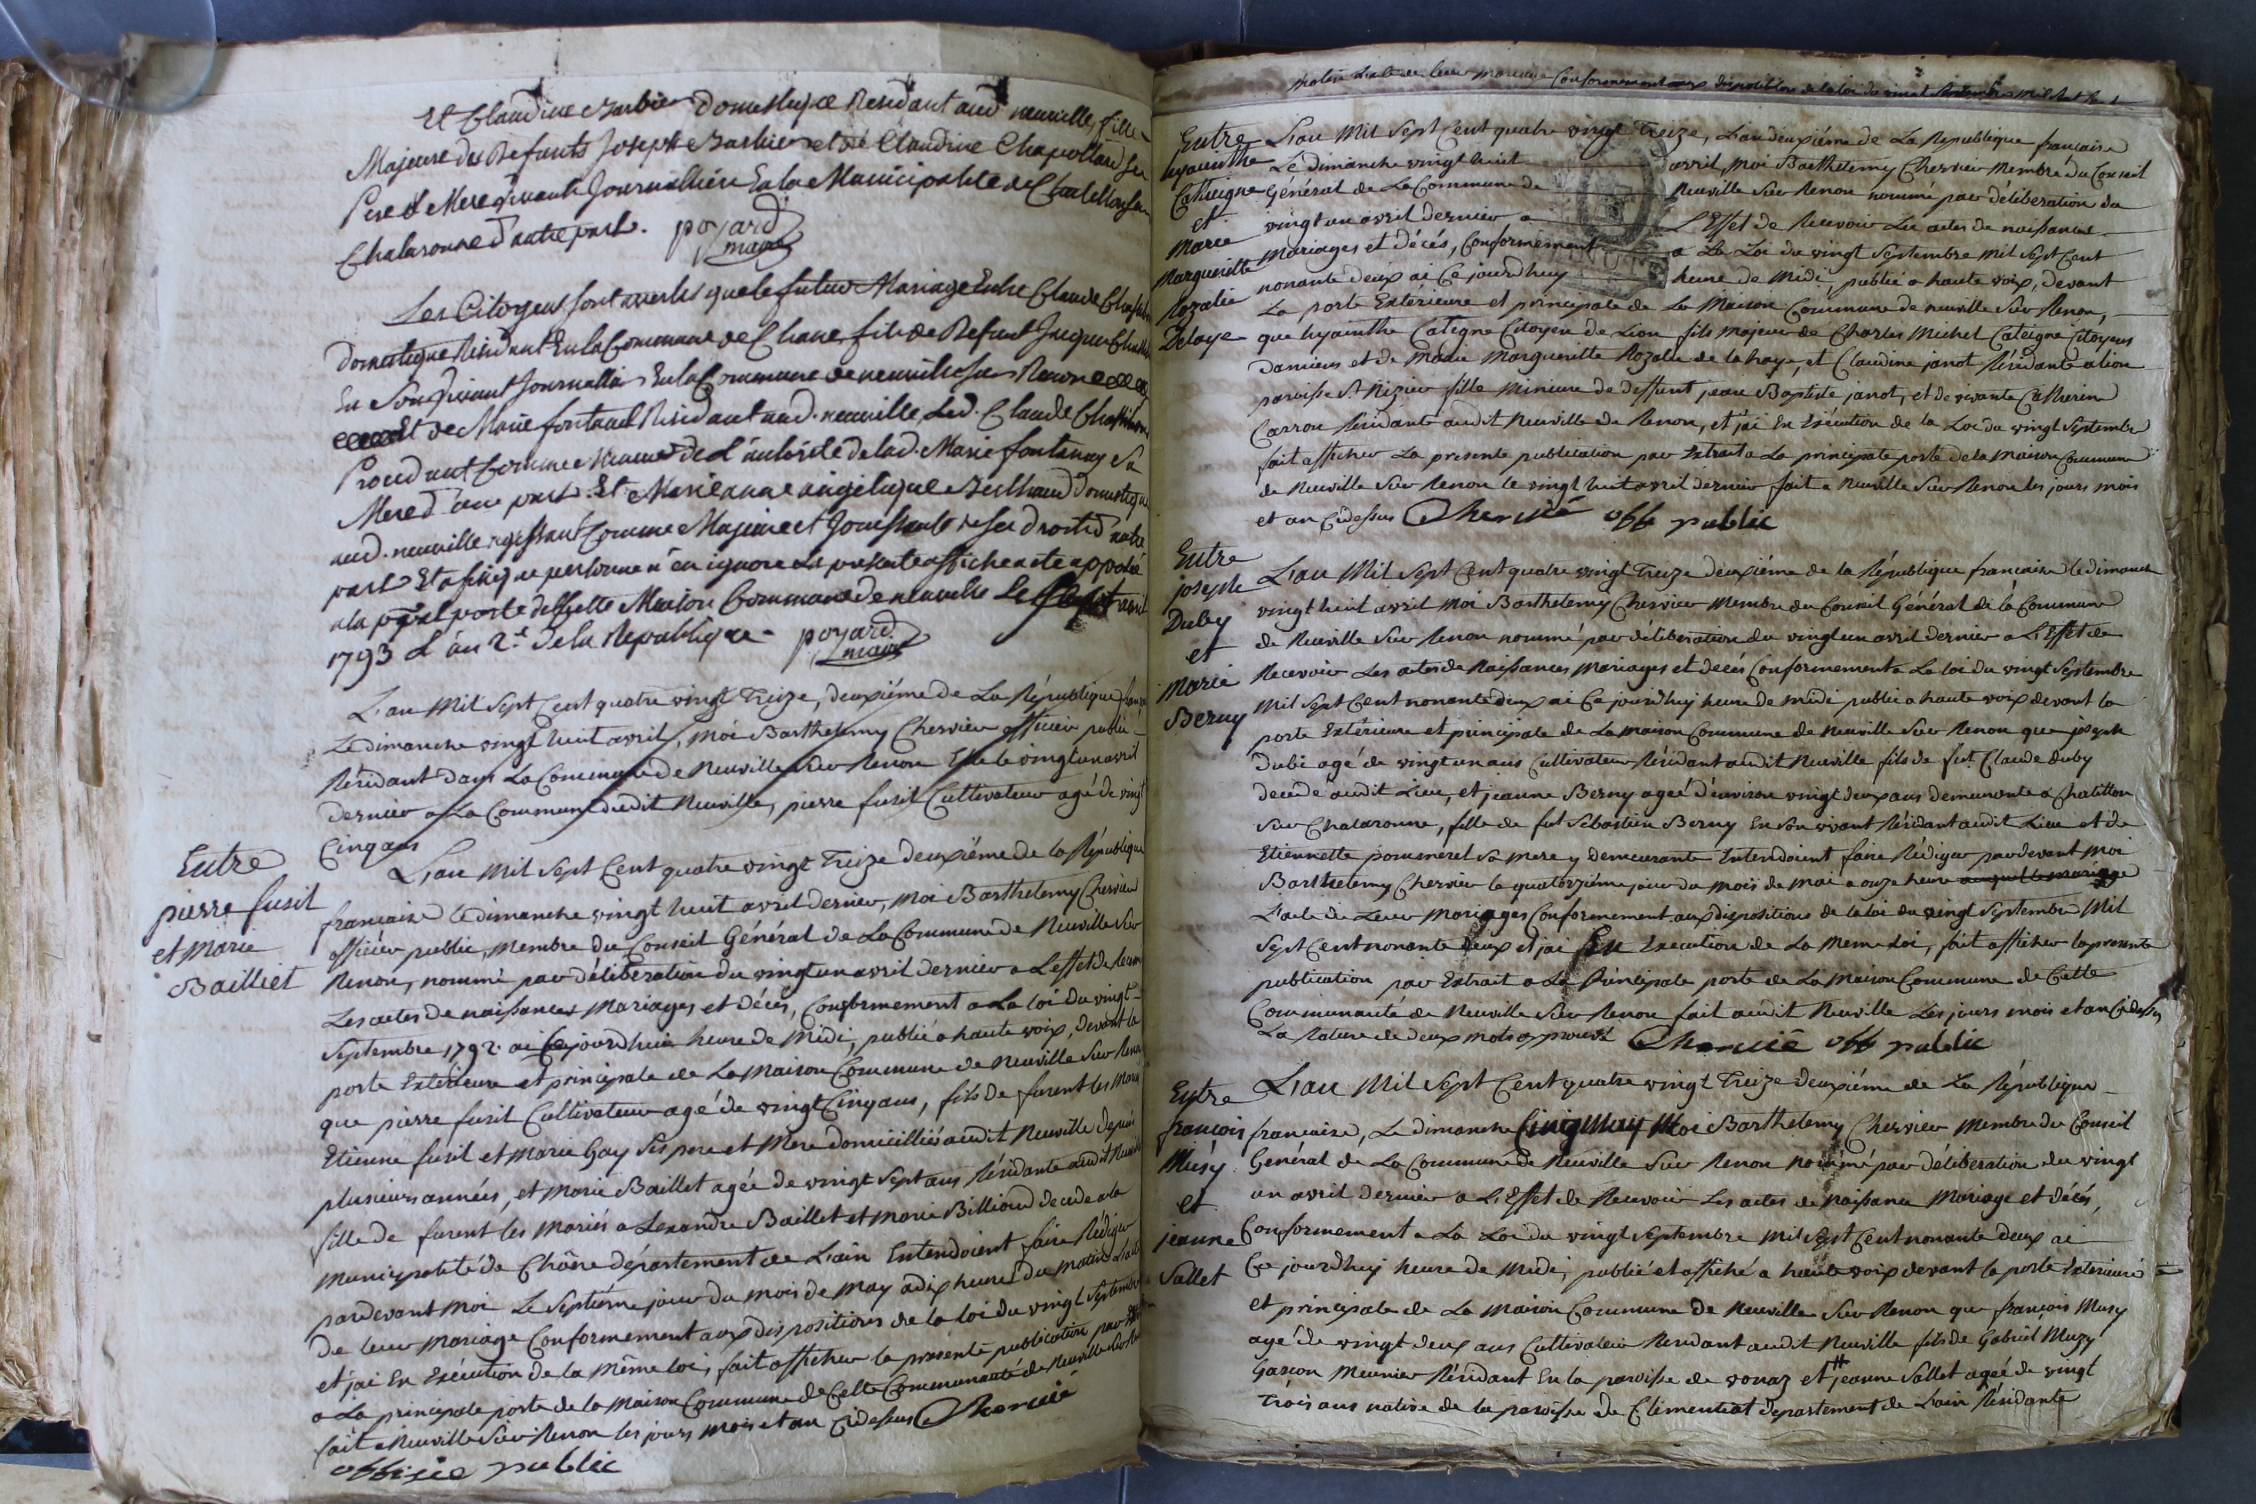 Et Claudine Barbier domestique Residant aud neuville, fille
Majeure des Defunts Joseph Barbier et de Claudine Chapollard ses
Pere et Mere vivants Journalliers En la Municipalité de Chatellon sur
Chalaronne d'autre part. poyard
maire
Les Citoyens sont avertis que le futur Mariage Entre Claude
domestique Résidant En la Commune de Chane, fils de Defunt Jacques
En Son vivant Journallier En la Commune de neuville sur Renon
Et de Marie fontanel Residant aud. neuville, Led. Claude
Procedant Comme Mineur de L'autorité de lad. Marie fontanay Sa
Mere d'une part. Et Marieanne angelique domestique
aud. neuville agissant Comme Majeure et Jouissante de ses droits d'autre
part Et afin que personne n'en ignore La presente affiche a ete apposée
a la ppal porte de cette Maison Commune de neuville Le avril
1793 L'an 2.e de la Republique - poyard
maire
L'an Mil Sept Cent quatre vingt Treize, deuxiéme de La République
Le dimanche vingt huit avril, Moi Barthelemy Chervier officier public
Résidant dans La Commune de Neuville sur Renon Elu le vingt un avril
dernier a La Commune dudit Neuville, pierre fusil Cultivateur agé de vingt
Cinq ans
Entre
pierre fusil
et Marie
Bailliet
L'an Mil Sept Cent quatre vingt Treize deuxiéme de la République
française le dimanche vingt huit avril dernier, Moi Barthelemy Chervier
officier public, Membre du Conseil Général de La Commune de Neuville Sur
Renon, nommé par déliberation du vingt un avril dernier a L'effet de
Les actes de naissances Mariages et décés, Conformement a La loi du vingt
Septembre 1792. ai Ce jourdhui heure de Midi, publié a haute voix, devant la
porte Extérieure et principale de La Maison Commune de neuville Sur Renon
que pierre fusil Cultivateur agé de vingt Cinq ans, fils de furent les Mariés
Etienne fusil et Marie Gay Ses pere et Mere domicilliés audit Neuville depuis
plusieurs années, et Marie Baillet agée de vingt Sept ans Résidante audit Neuville
fille de furent les Mariés a Lexandre Baillet et Marie Billioud decede a la
Municipalité de Chane département de L'ain Entendoient faire Rédiger
pardevant moi Le Septiéme jour du mois de May a dix heures du matin L'acte
de leur Mariage Conformement aux dispositions de la loi du vingt Septembre
et jai En Exécution de la Même loi, fait afficher la presente publication par
a La principale porte de la Maison Commune de Cette Communauté de Neuville
fait a Neuville Sur Renon les jours Mois et an Cidessus Chervié
officie public
L'acte de leur Mariage Conformement aux dispositions de la loi du vingt Septembre Mil Sept Cent
Entre
hyacinthe
Cateigne
et
Marie
Marguerite
Rozalie
Delaye
L'an Mil Sept Cent quatre vingt Treize, L'an deuxiéme de La République française
Le dimanche vingt huit avril, Moi Barthelemy Chervier Membre du Conseil
Général de La Commune de Neuville Sur Renon nommé par déliberation du
vingt un avril dernier a L'Effet de Recevoir Les actes de naissances
Mariages et décés, Conformement a La Loi du vingt Septembre Mil Sept Cent
nonante deux ai Ce jourdhuy heure de Midi, publié a haute voix, devant
La porte Extérieure et principale de La Maison Commune de neuville Sur Renon,
que hyacinthe Cateigne Citoyen de Lion fils Majeur de Charles Michel Cateigne Citoyen
et de Marie Marguerite Rozalie de la haye, et Claudine janot Résidante a lion
paroisse St Nizier fille Mineure de deffunt jean Baptiste janot, et de vivante Catherine
Carron Résidante audit Neuville Sur Renon, et j'ai En Exécution de la Loi du vingt Septembre
fait afficher La presente publication par Extrait a La principale porte de la Maison Commune
de Neuville Sur Renon le vingt huit avril dernier fait a Neuville Sur Renon les jours mois
et an Cidessus Chervié off public
Entre
joseph
Duby
et
Marie
Berny
L'an Mil Sept Cent quatre vingt Treize deuxiéme de la République francaise le dimanche
vingt huit avril Moi Barthelemy Chervier Membre du Conseil Général de la Commune
de Neuville Sur Renon nommé par déliberation du vingt un avril dernier a L'Effet de
Recevoir Les actes de Naissances Mariages et decés Conformement a La loi du vingt Septembre
Mil Sept Cent nonante deux ai Ce jourdhuy heure de midi publié a haute voix devant la
porte Extérieure et principale de La maison Commune de Neuville Sur Renon que joseph
Dubi agé de vingt un ans Cultivateur Résidant audit Neuville fils de fut Claude duby
decédé audit Lieu, et jeanne Berny agée d'environ vingt deux ans demeurante a Chatillon
Sur Chalaronne, fille de fut Sebastien Berny En Son vivant Résidant audit Lieu et de
Etiennette pommerel Sa mere y demeurante Entendoient faire Rédiger pardevant Moi
Barthelemy Chervier le quatorziéme jour du Mois de Mai a onze heure
L'acte de Leur Mariages Conformement aux dispositions de la loi du vingt Septembre Mil
Sept Cent nonante deux et jai En Execution de La Meme Loi, fait afficher la presente
publication par Extrait a La Principale porte de La Maison Commune de Cette
Communauté de Neuville Sur Renon fait audit Neuville Les jours mois et an Cidessus
La Rature de deux mots aprouvé Chervié off public
Entre
françois
Musy
et
jeanne
Sallet
L'an Mil Sept Cent quatre vingt Treize deuxiéme de La République
francaise, Le dimanche Cinq May Moi Barthelemy Chervier Membre du Conseil
Genéral de La Commune de Neuville Sur Renon nommé par déliberation du vingt
un avril dernier a L'Effet de Recevoir Les actes de Naissance Mariage et décés,
Conformement a La Loi du vingt Septembre Mil Sept Cent nonante deux ai
Ce jourdhuy heure de Midi, publié et affiché a haute voix devant la porte Extérieure
et principale de La Maison Commune de Neuville Sur Renon que françois Musy
agé de vingt deux ans Cultivateur Résidant audit Neuville fils de Gabriel Muzy
Garcon Meunier Résidant En la paroisse de vonaz et jeanne Sallet agée de vingt
Trois ans native de la paroisse de Clémentiat département de L'ain Résidante